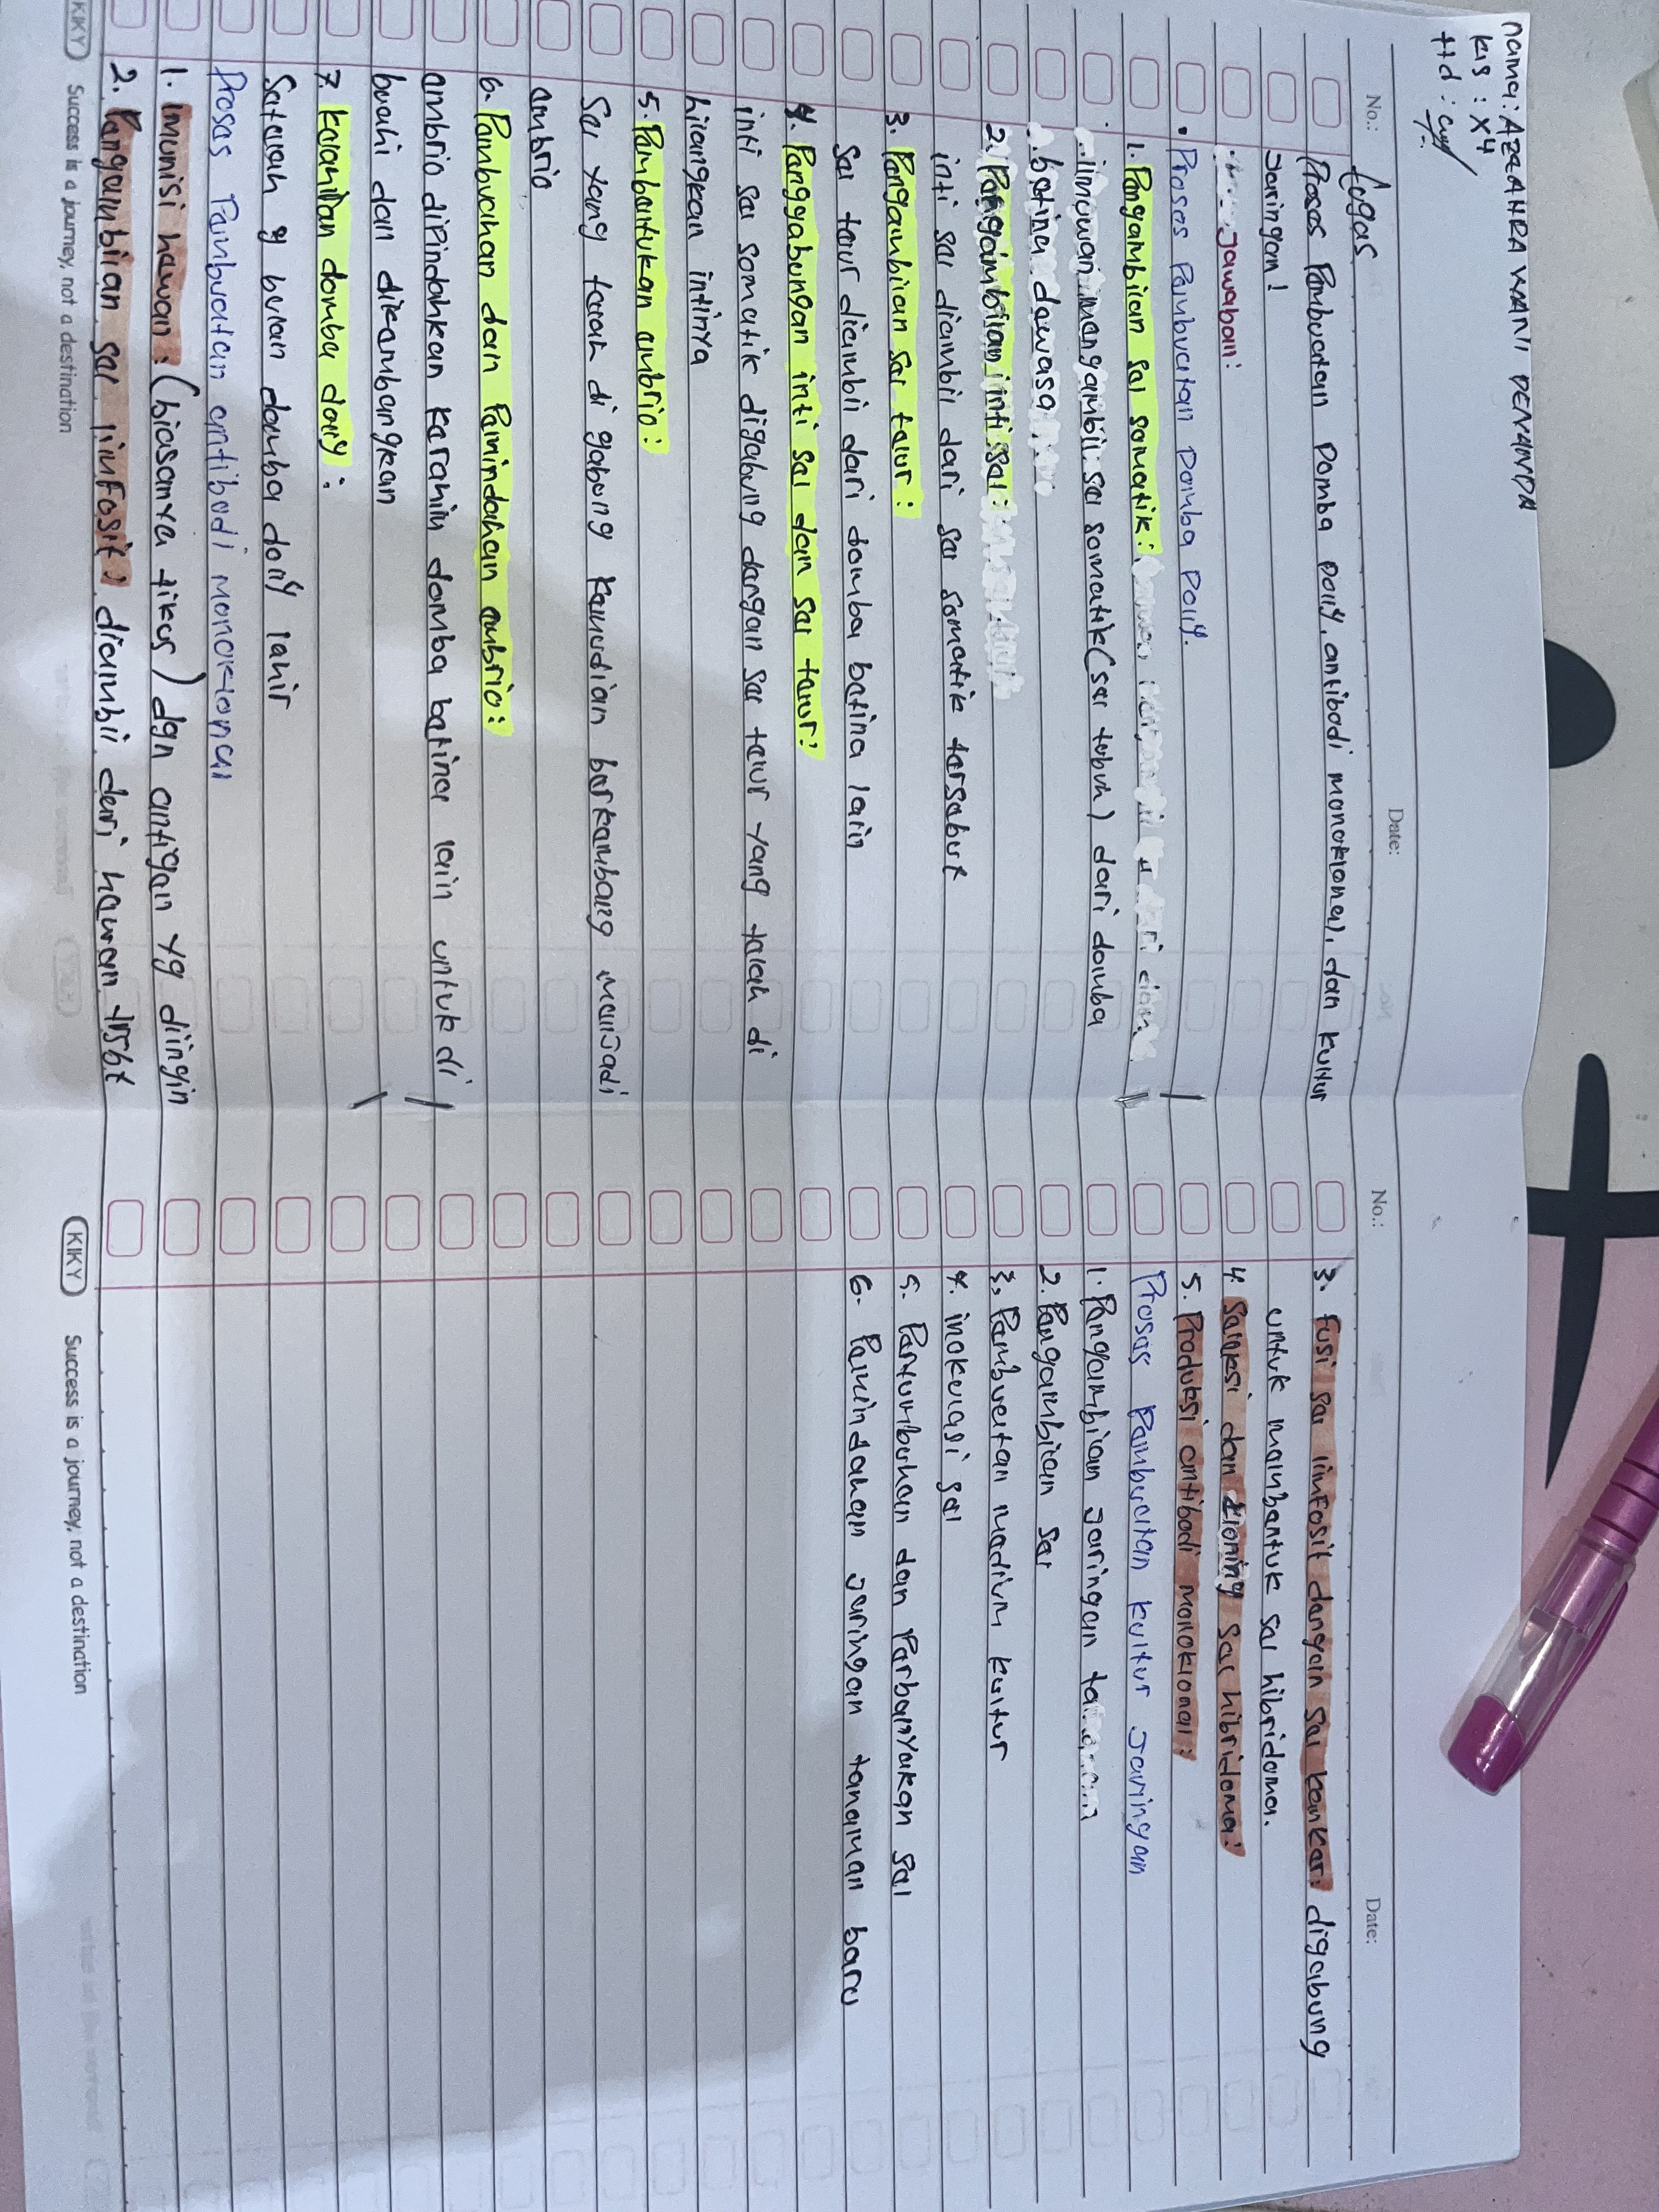 nama: AZZAHRA WANLI DENANDA
kls : X4
ttd :
No.:
Date:
Tugas
Proses Pembuatan Domba Dolly, antibodi monoklonal, dan kultur
Jaringan!
Jawaban:
• Proses Pembuatan Domba Dolly.
1. Pengambilan sel somatik:
ilmuwan mengambil sel somatik (sel tubuh) dari domba
betina dewasa
2. Pengambilan inti sel:
inti sel diambil dari sel somatik tersebut
3. Pengambilan sel telur:
sel telur diambil dari domba betina lain
4. Penggabungan inti sel dan sel telur:
inti sel somatik digabung dengan sel telur yang telah di
hilangkan intinya
5. Pembentukan embrio:
Sel yang telah di gabung kemudian berkembang menjadi
embrio
6. Pembuahan dan Pemindahan embrio:
embrio dipindahkan kerahim domba betina lain untuk di
buahi dan dikembangkan
7. kelahiran domba dolly:
Setelah 9 bulan domba dolly lahir
Proses Pembuatan antibodi monoklonal
1. imunisi hewan: (biasanya tikus) dgn antigen yg diingin
2. Pengambilan sel limfosit: diambil dari hewan trsbt
KIKY Success is a journey, not a destination
No.:
Date:
3. fusi sel limfosit dengan sel kanker: digabung
untuk membentuk sel hibridoma.
4. Seleksi dan kloning sel hibridoma:
5. Produksi antibodi monoklonal:
Proses Pembuatan kultur Jaringan
1. Pengambilan Jaringan tanaman
2. Pengambilan sel
3. Pembuatan medium kultur
4. inokulasi sel
5. Pertumbuhan dan Perbanyakan sel
6. Pemindahan Jaringan tanaman baru
KIKY Success is a journey, not a destination